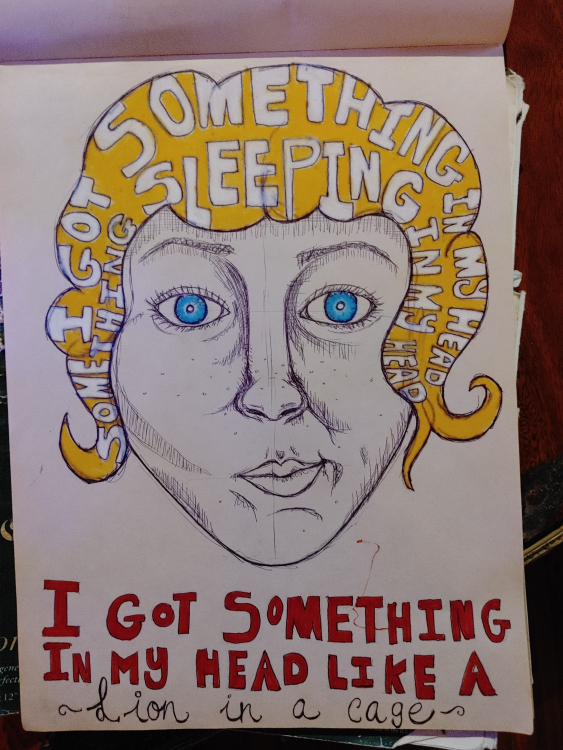 I GOT SOMETHING IN MY HEAD
SOMETHING SLEEPING IN MY HEAD
I GOT SOMETHING
IN MY HEAD LIKE A
~Lion in a cage~